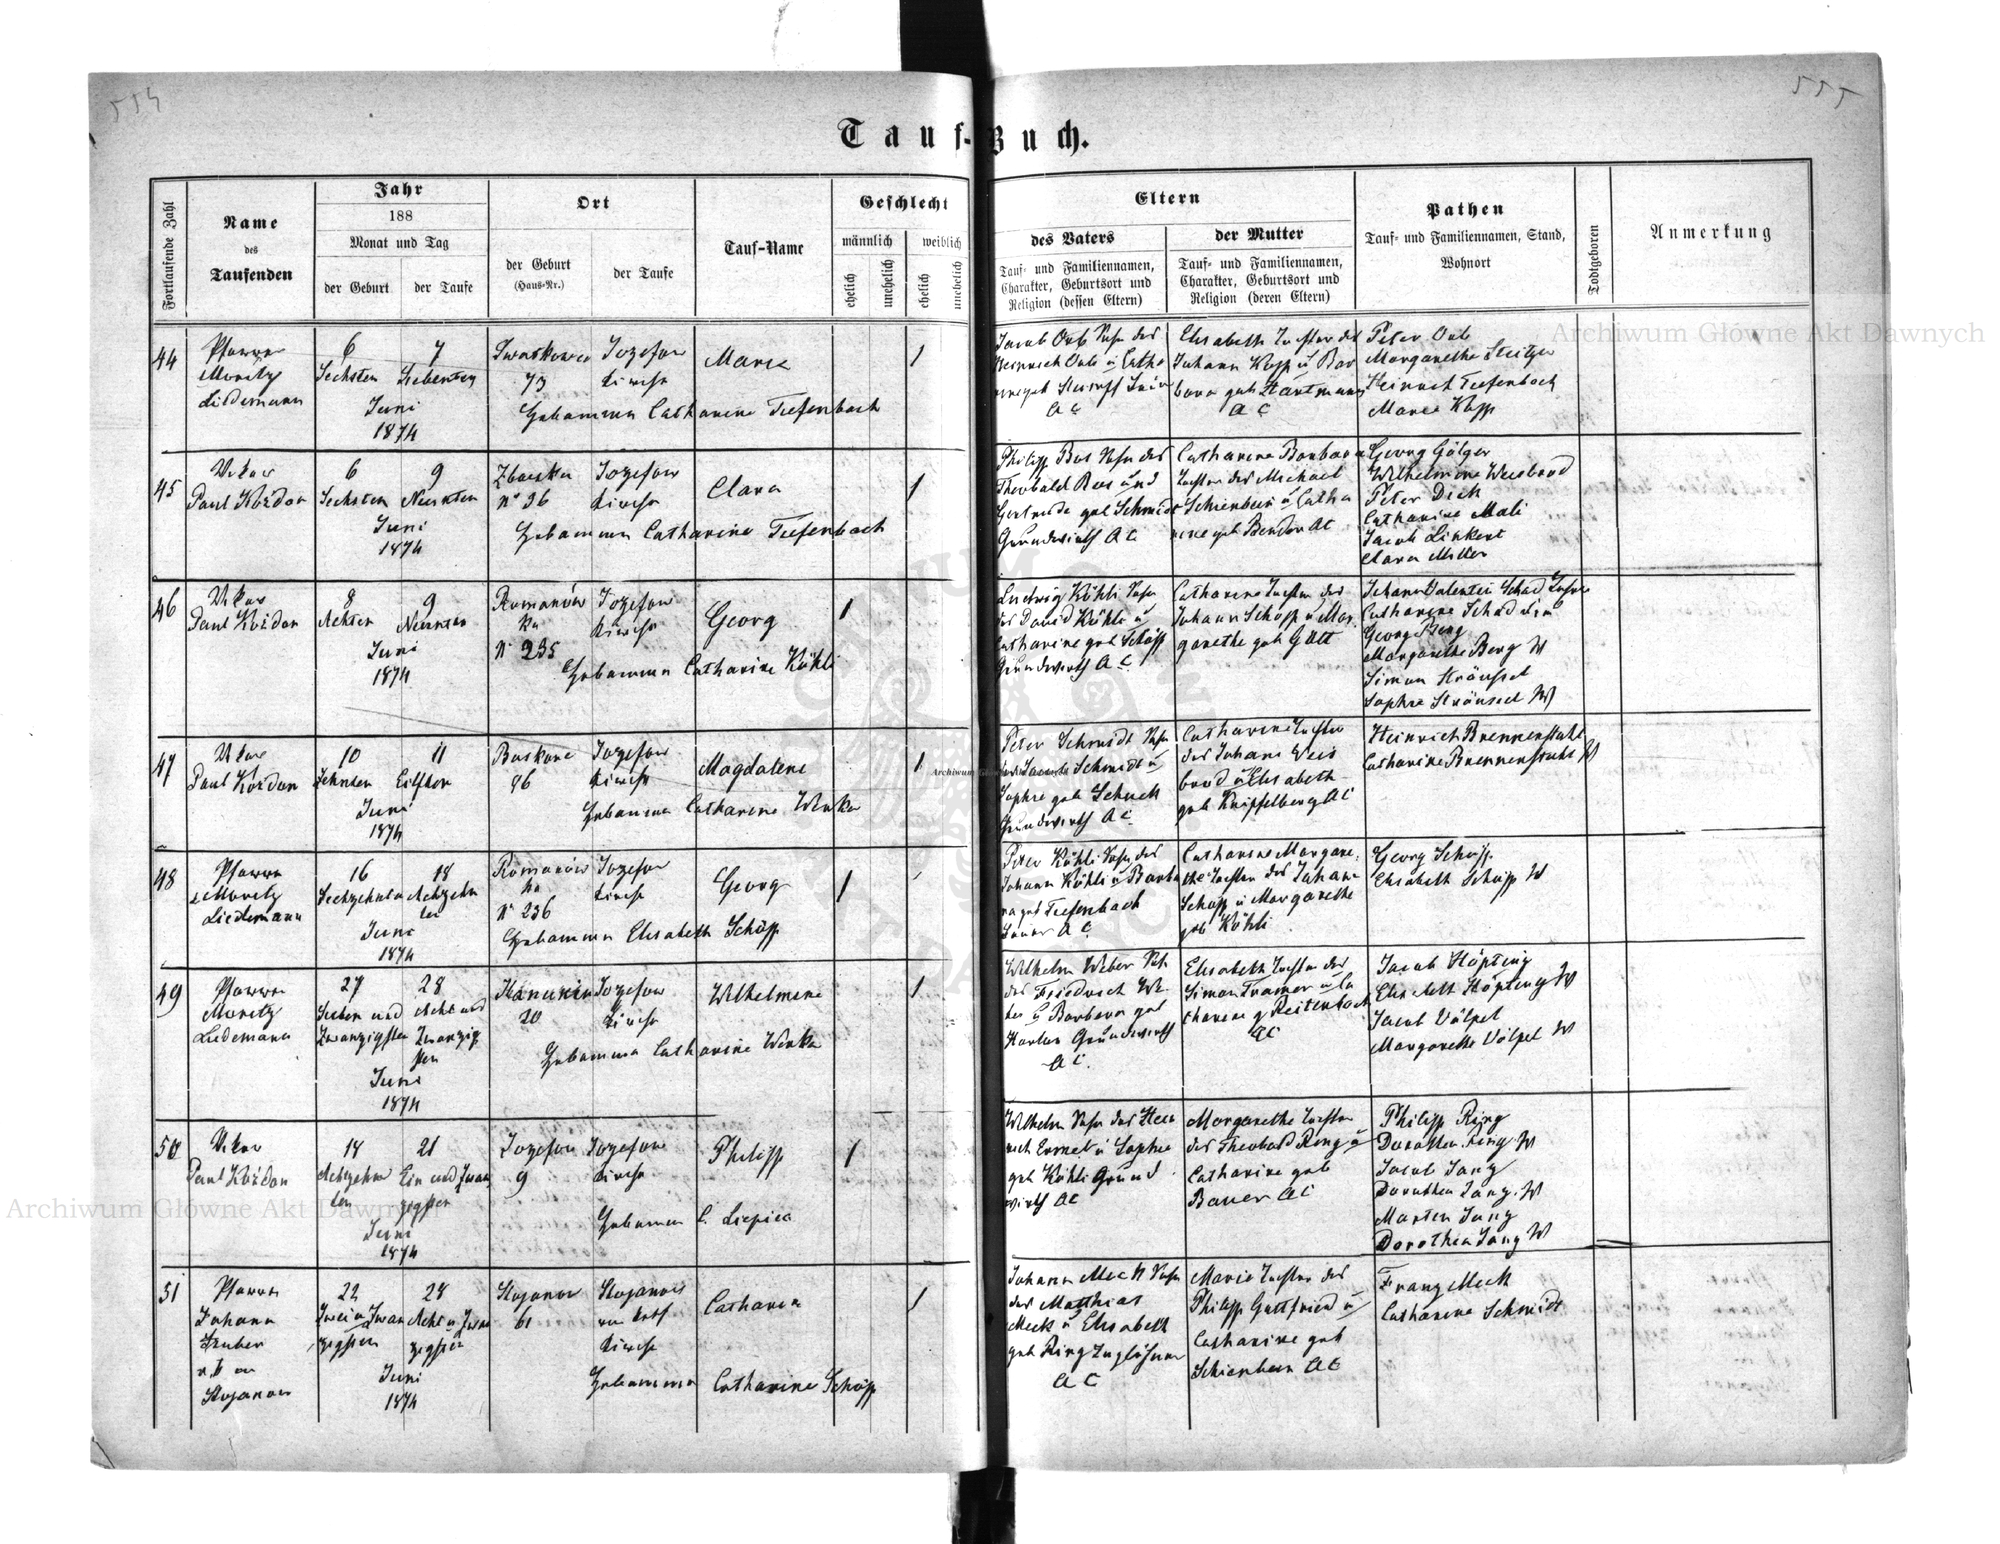 554
555
Tauf-Buch.
Fortlaufende Zahl
Name
des
Taufenden
Jahr
188
Monat und Tag
der Geburt
der Taufe
Ort
der Geburt
(Haus-Nr.)
der Taufe
Tauf-Name
Geschlecht
männlich
weiblich
ehelich
unehelich
ehelich
unehelich
Eltern
des Vaters
Tauf- und Familiennamen,
Charakter, Geburtsort und
Religion (dessen Eltern)
der Mutter
Tauf- und Familiennamen,
Charakter, Geburtsort und
Religion (deren Eltern)
Pathen
Tauf- und Familiennamen, Stand,
Wohnort
Todtgeboren
Anmerkung
44
Pfarrer
Moritz
Liedemann
6
Sechsten
7
Siebenten
Juni
1874
73
Jozefow
Kirche
Marie
1
Hebamme Catharine Tiefenbach
Jacob Orb Sohn des
Heinrich Orb u Catha
A C
Elisabeth Tochter des
Johann Kopp u Bar
bara geb Hartmann
A C
Peter Orb
Margarethe Steitzer
Heinrich Tiefenbach
Marie Kopp
45
Vikar
Paul Kożdon
6
Sechsten
9
Neunten
Juni
1874
No 36
Jozefow
Kirche
Clara
1
Hebamme Catharine Tiefenbach
Philipp Bos Sohn des
Theobald Bos und
Gertrude geb Schmidt
Grundwirth A C
Catharine Barbara
Tochter des Michael
Schienbein u Catha
rine geb Bender AC
Georg Gölger
Wilhelmine Weisbrod
Peter Dick
Catharine Mali
Jacob Linkert
Clara Miller
46
Vikar
Paul Kożdon
8
Achten
9
Neunten
Juni
1874
Romanów
ka
No 235
Jozefow
Kirche
Georg
1
Hebamme Catharine Köhli
Ludwig Köhli Sohn
des David Köhli u
Catharine geb Schöpp
Grundwirth A C
Catharine Tochter des
Johann Schöpp u Mar
garethe geb Gött
Johann Valentin Schad
Catharine Schad
Georg Berg
Margarethe Berg W
Simon Sträussel
Sophie Sträussel W
47
Vikar
Paul Kożdon
10
Zehnten
11
Eilften
Juni
1874
86
Jozefow
Kirche
Magdalene
1
Hebamme Catharine Wenka
Peter Schmidt Sohn
des Jacob Schmidt u
Sophie geb Schuck
Grundwirth A C
Catharine Tochter
des Johann Weis
brod u Elisabeth
geb Knipfelberg AC
Heinrich Brennenstuhl
Catharine Brennenstuhl W
48
Pfarrer
Moritz
Liedemann
16
Sechzehnten
18
Achtzehn
ten
Juni
1874
Romanów
ka
No 236
Jozefow
Kirche
Georg
1
Hebamme Elisabeth Schöpp
Peter Köhli Sohn des
Johann Köhli u Barba
ra geb Tiefenbach
Bauer A C
Catharine Margare
the Tochter des Johann
Schöpp u Margarethe
geb Köhli
Georg Schöpp
Elisabeth Schöpp W
49
Pfarrer
Moritz
Liedemann
27
Sieben und
Zwanzigsten
28
Acht und
Zwanzig
sten
Juni
1874
Hanunin
20
Jozefow
Kirche
Wilhelmine
1
Hebamme Catharine Wenka
Wilhelm Weber Soh
des Friedrich We
ber u Barbara geb
Karber Grundwirth
A C.
Elisabeth Tochter des
Simon Tramer u Ca
tharine g Reitenbach
AC
Jacob Höpting
Elisabeth Höpting W
Jacob Völpel
Margarethe Völpel W
50
Vikar
Paul Kożdon
18
Achtzehn
ten
21
Ein und Zwan
zigsten
Juni
1874
Jozefow
9
Jozefow
Kirche
Philipp
1
Hebamme C. Liepies
Wilhelm Sohn des Hein
rich Ermel u Sophie
geb Köhli Grund
wirth AC
Margarethe Tochter
des Theobald Ring u
Catharine geb
Bauer AC
Philipp Ring
Dorothea Ring W
Jacob Jang
Dorothea Jang W
Martin Jang
Dorothea Jang W
51
Pfarrer
Johann
Gruber
Stojanow
22
Zwei u Zwan
zigsten
28
Acht u Zwan
zigsten
Juni
1874
Stojanow
61
Stojanow
Kirche
Catharina
1
Hebamme Catharine Schöpp
Johann Meck Sohn
des Matthias
Meck u Elisabeth
geb Ring
A C
Marie Tochter des
Philipp Gottfried u
Catharine geb
Schienbein AC
Franz Meck
Catharine Schmidt
Archiwum Główne Akt Dawnych
Archiwum Główne Akt Dawnych